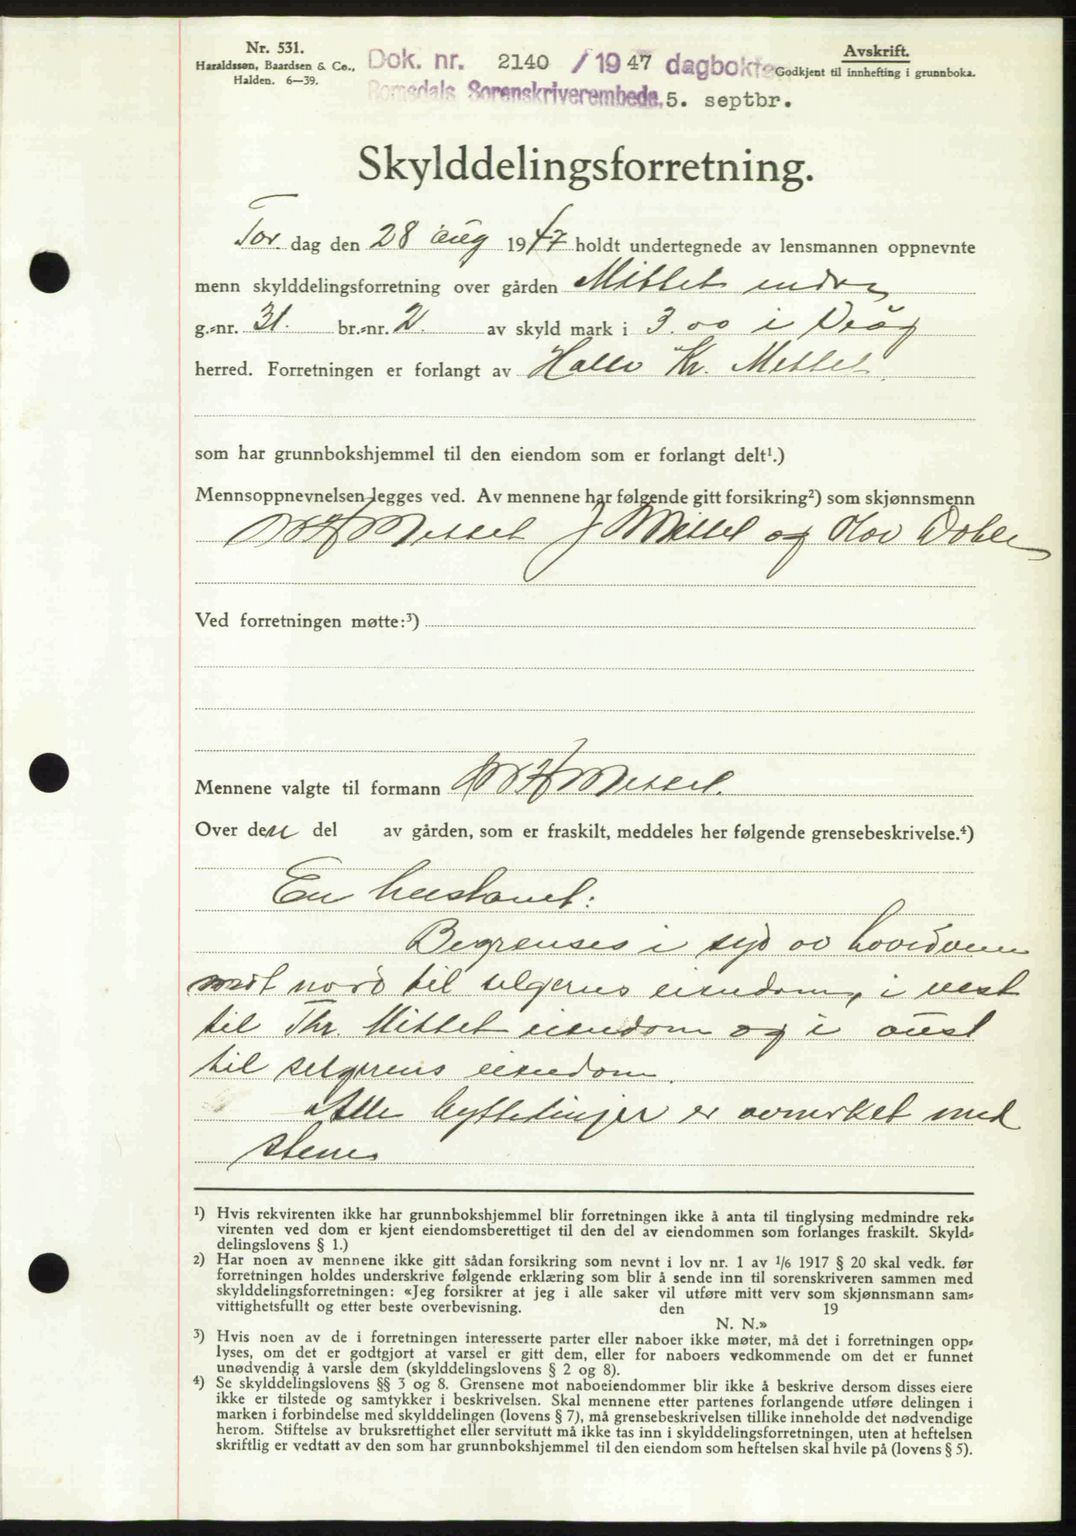 Nr. 531.
Haraldssøn, Baardsen & Co.,
Halden. 6—39.
Dok. nr. 2140 / 1947 dagbokten
Romsdals Sorenskriverembede, 5. septbr.
Avskrift.
Godkjent til innhefting i grunnboka.
Skylddelingsforretning.
Tors dag den 28 aug 1947 holdt undertegnede av lensmannen oppnevnte
menn skylddelingsforretning over gården Mittet indre
g.-nr. 31. br.-nr. 2. av skyld mark i 3.00 i Veøy
herred. Forretningen er forlangt av Hallv Kr. Mittet.
som har grunnbokshjemmel til den eiendom som er forlangt delt¹.)
Mennsoppnevnelsen legges ved. Av mennene har følgende gitt forsikring²) som skjønnsmenn
Mittet J Mittet og Olav
Ved forretningen møtte:³)
Mennene valgte til formann Mittet.
Over den del av gården, som er fraskilt, meddeles her følgende grensebeskrivelse.⁴)
En hustomt:
Begrenses i syd av hovedveien
mot nord til selgerens eiendom, i vest
til Thr. Mittet eiendom og i aust
til selgerens eiendom.
Alle byttelinjer er avmerket med
stene
¹) Hvis rekvirenten ikke har grunnbokshjemmel blir forretningen ikke å anta til tinglysing medmindre rek-
virenten ved dom er kjent eiendomsberettiget til den del av eiendommen som forlanges fraskilt. Skyld-
delingslovens § 1.)
²) Har noen av mennene ikke gitt sådan forsikring som nevnt i lov nr. 1 av 1/6 1917 § 20 skal vedk. før
forretningen holdes underskrive følgende erklæring som blir å sende inn til sorenskriveren sammen med
skylddelingsforretningen: «Jeg forsikrer at jeg i alle saker vil utføre mitt verv som skjønnsmann sam-
vittighetsfullt og etter beste overbevisning. den 19
N. N.»
³) Hvis noen av de i forretningen interesserte parter eller naboer ikke møter, må det i forretningen opp-
lyses, om det er godtgjort at varsel er gitt dem, eller for naboers vedkommende om det er funnet
unødvendig å varsle dem (skylddelingslovens § 2 og 8).
⁴) Se skylddelingslovens §§ 3 og 8. Grensene mot naboeiendommer blir ikke å beskrive dersom disses eiere
ikke er tilstede og samtykker i beskrivelsen. Skal mennene etter partenes forlangende utføre delingen i
marken i forbindelse med skylddelingen (lovens § 7), må grensebeskrivelsen tillike inneholde det nødvendige
herom. Stiftelse av bruksrettighet eller servitutt må ikke tas inn i skylddelingsforretningen, uten at heftelsen
skriftlig er vedtatt av den som har grunnbokshjemmel til den eiendom som heftelsen skal hvile på (lovens § 5).